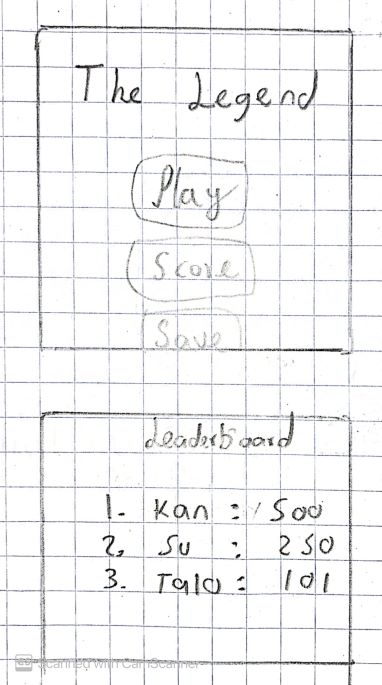 The Legend
Play
Score
Save
Leaderboard
1. Kan : 500
2, Su : 250
3. Talo : 101
Scanned with CamScanner